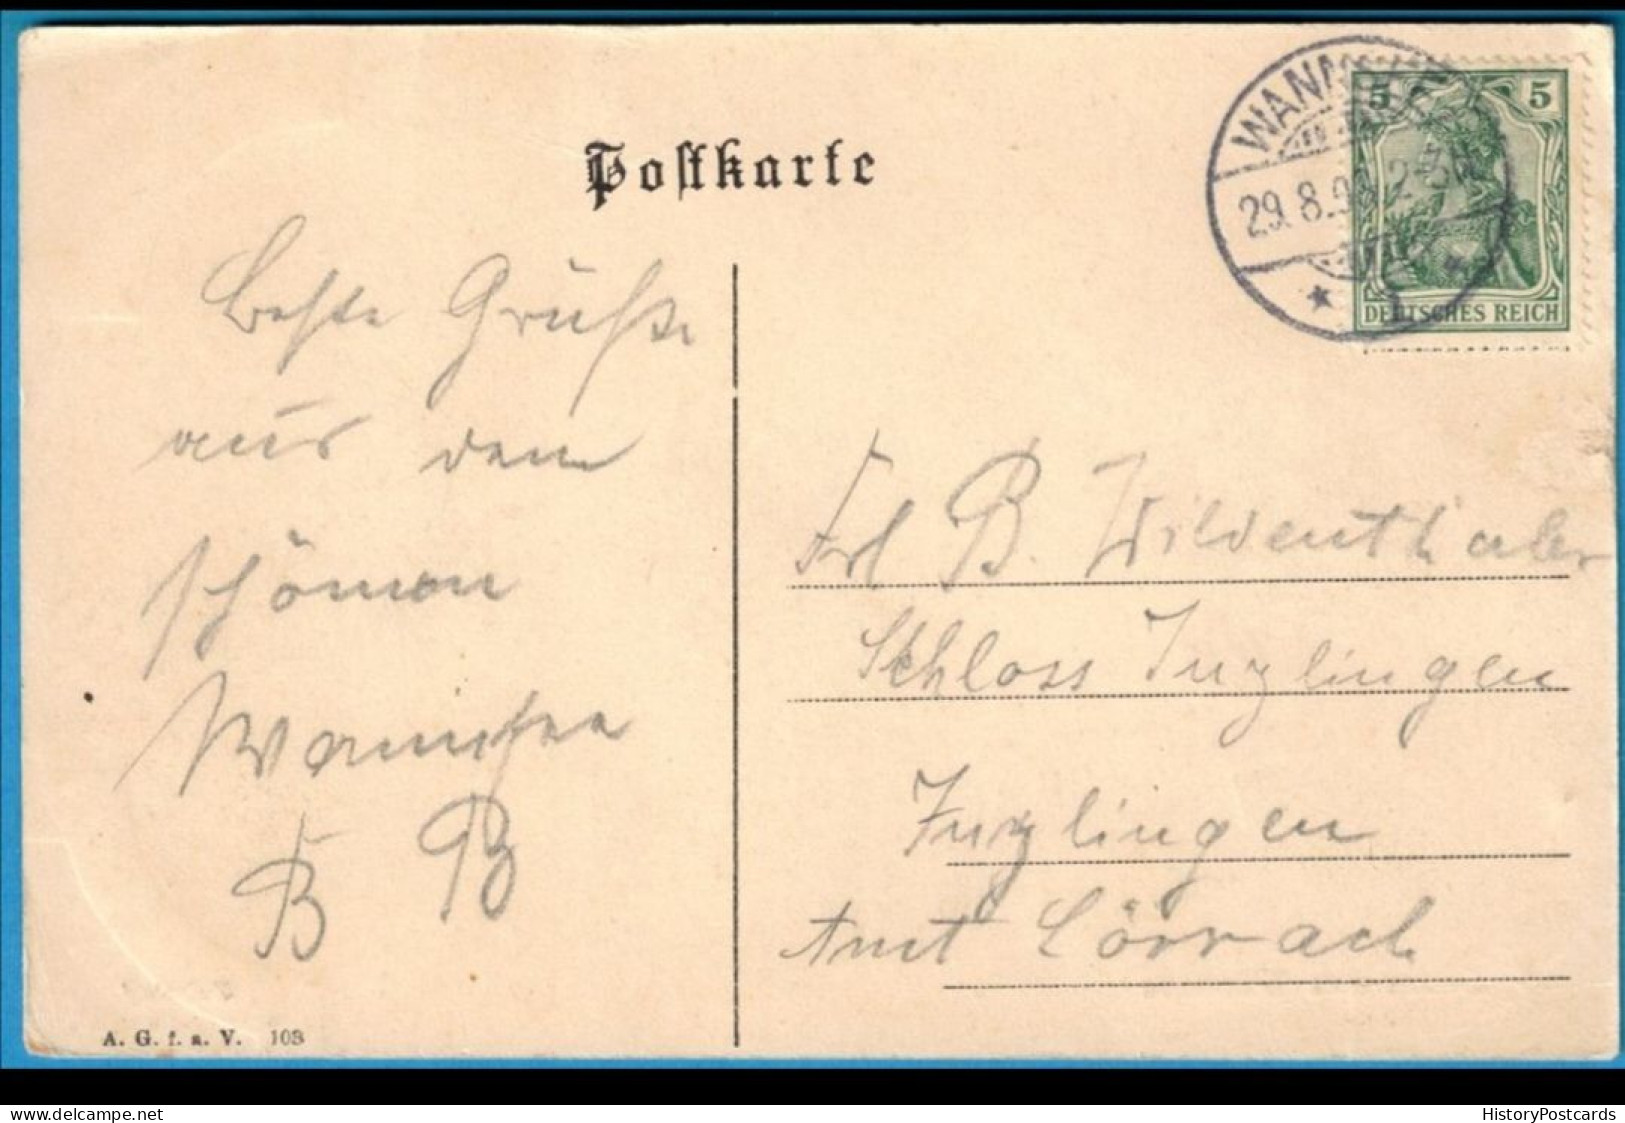 Postkarte
WANNSEE
29.8.
5 5
DEUTSCHES REICH
Beste Grüße
aus dem
schönen
Wannsee
B B
Frl B. Wildenthaler
Schloss Inzlingen
Inzlingen
Amt Lörrach
A. G. f. a. V. 103
www.delcampe.net
HistoryPostcards